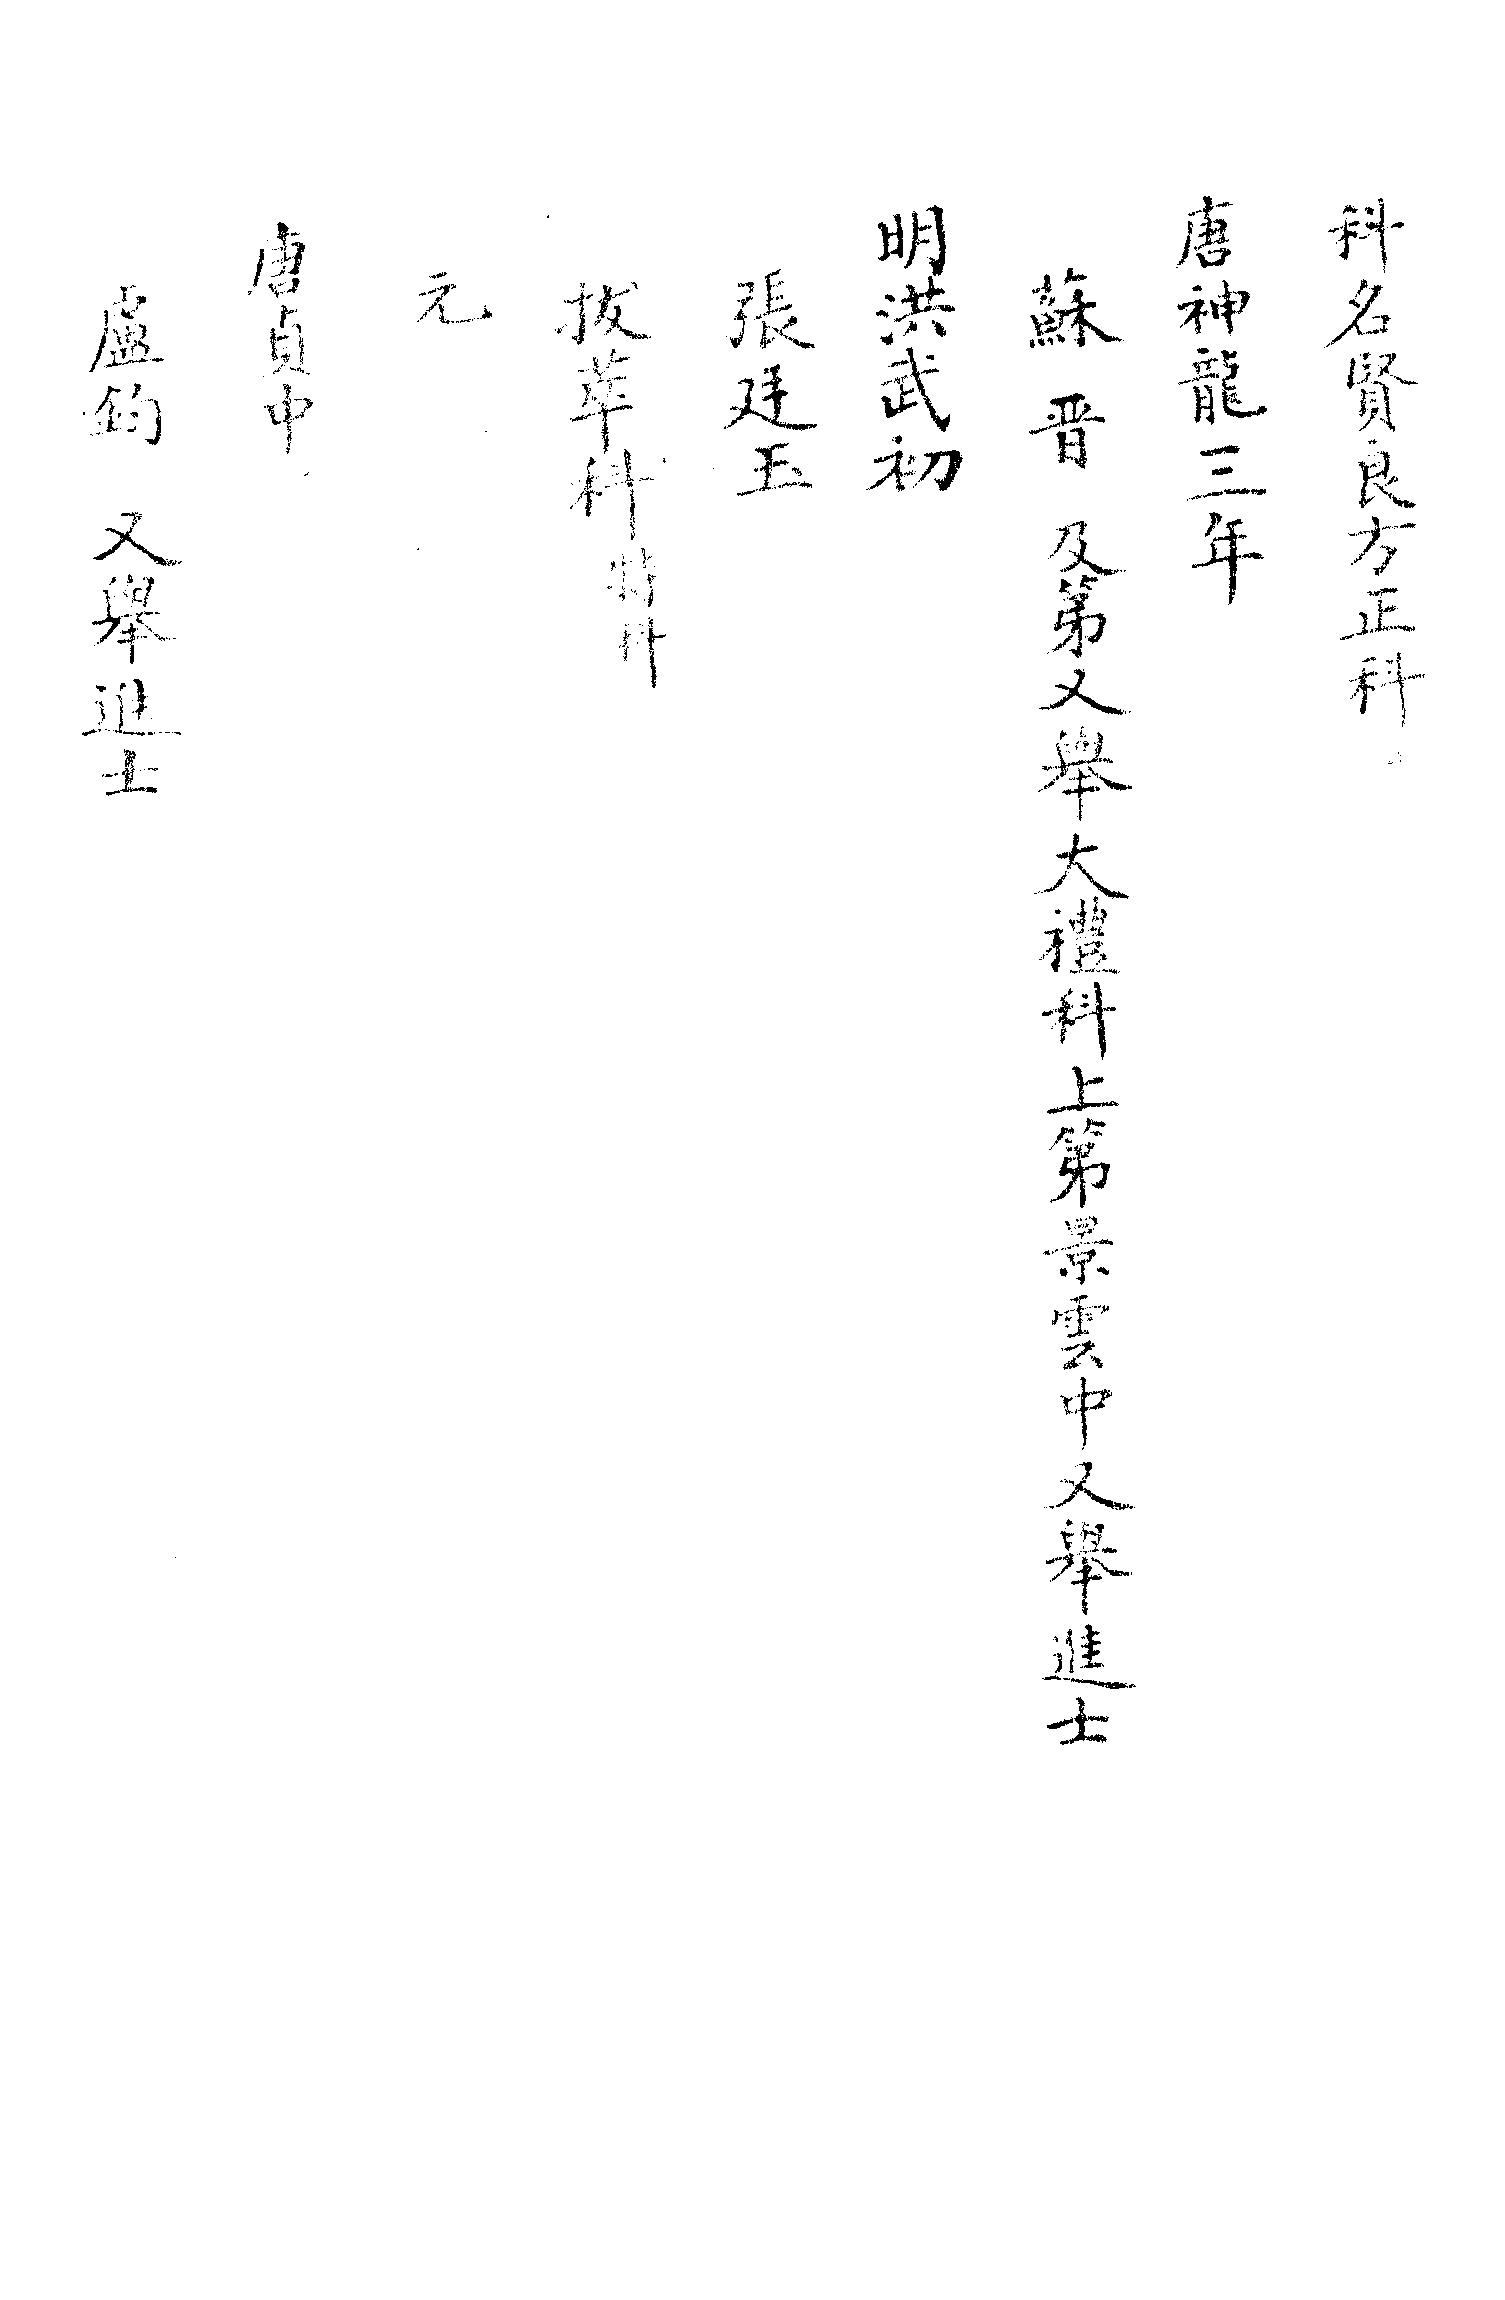 科名賢良方正科
唐神龍三年
蘇晋 及第又舉大禮科上第景雲中又舉進士
明洪武初
張廷玉
拔萃科特科
元
唐貞中
盧鈞 又舉進士